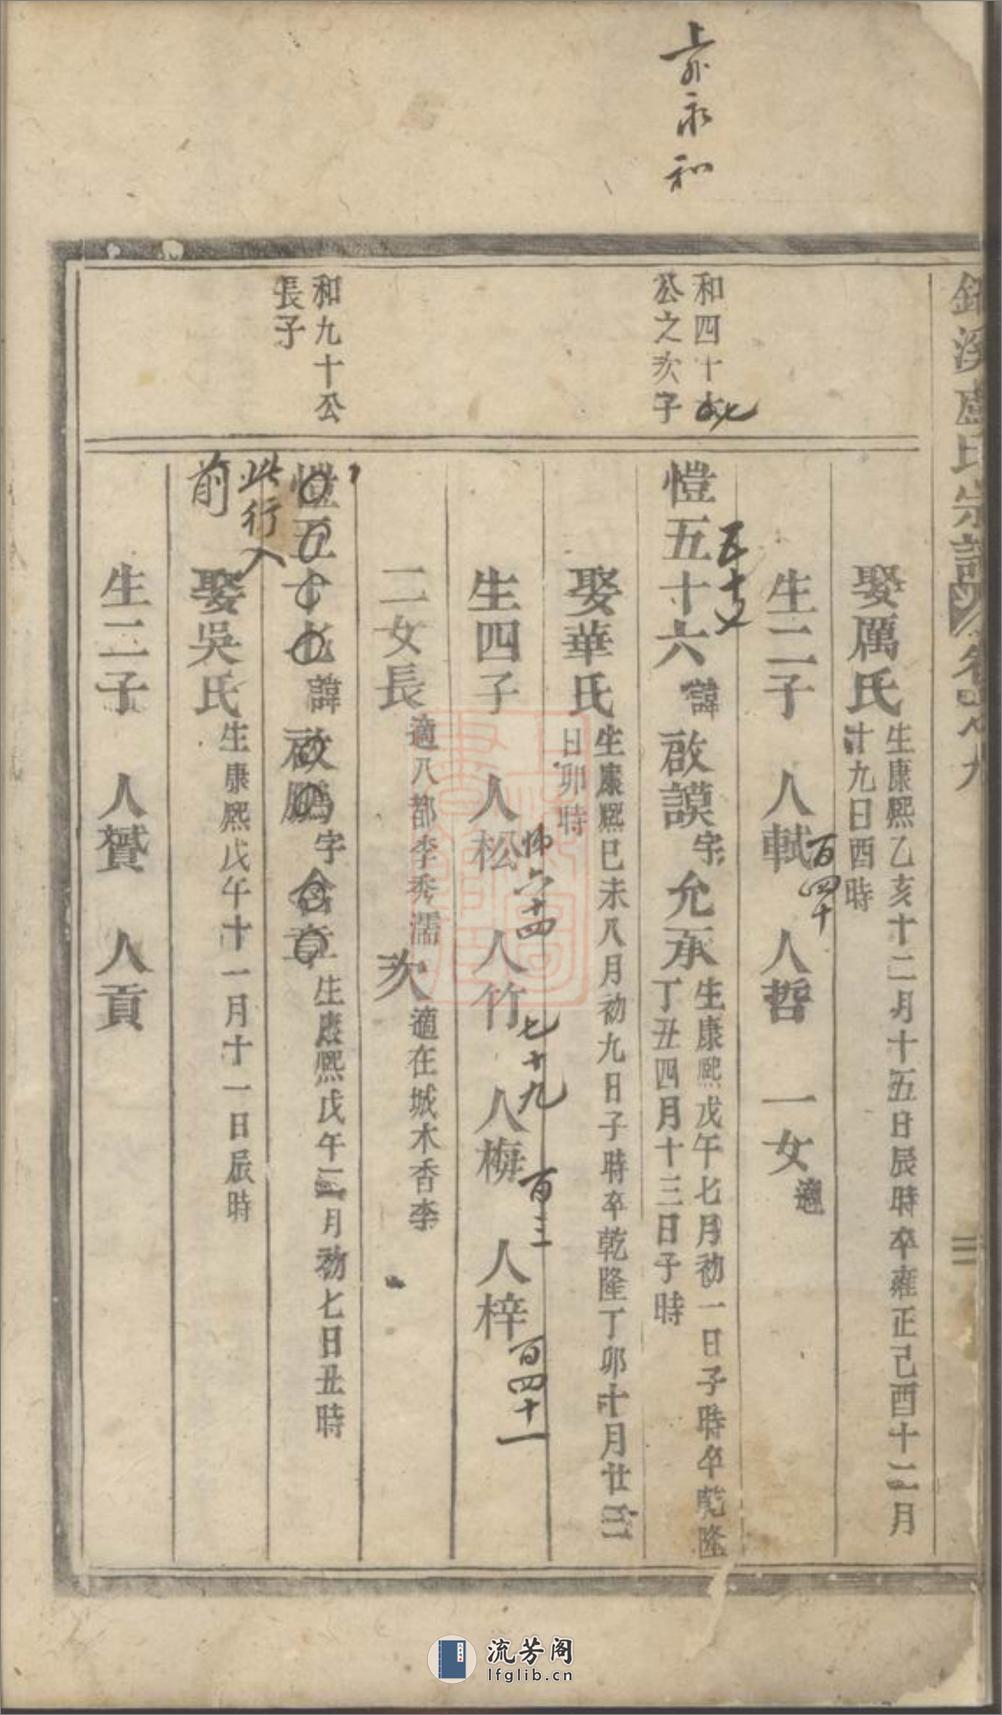 溪盧氏宗譜
永和
娶厲氏 生康熙乙亥十二月十五日辰時卒雍正己酉十二月
十九日酉時
生二子 人軾 百四十 人哲 一女 適
和四十七
公之次子
愷五十六 五十七 諱啟謨 字允承 生康熙戊午七月初一日子時卒乾隆
丁丑四月十三日子時
娶華氏 生康熙己未八月初九日子時卒乾隆丁卯十月廿三
日卯時
生四子 人松 六十四 人竹 七十九 人梅 百三 人梓 百四十一
二女長 適八都李秀濡 次 適在城木香李
和九十公
長子
愷五十七 諱啟鵬 字含章 生康熙戊午三月初七日丑時
此行入
前
娶吳氏 生康熙戊午十一月十一日辰時
生二子 人贊 人貢
流芳阁
lfglib.cn